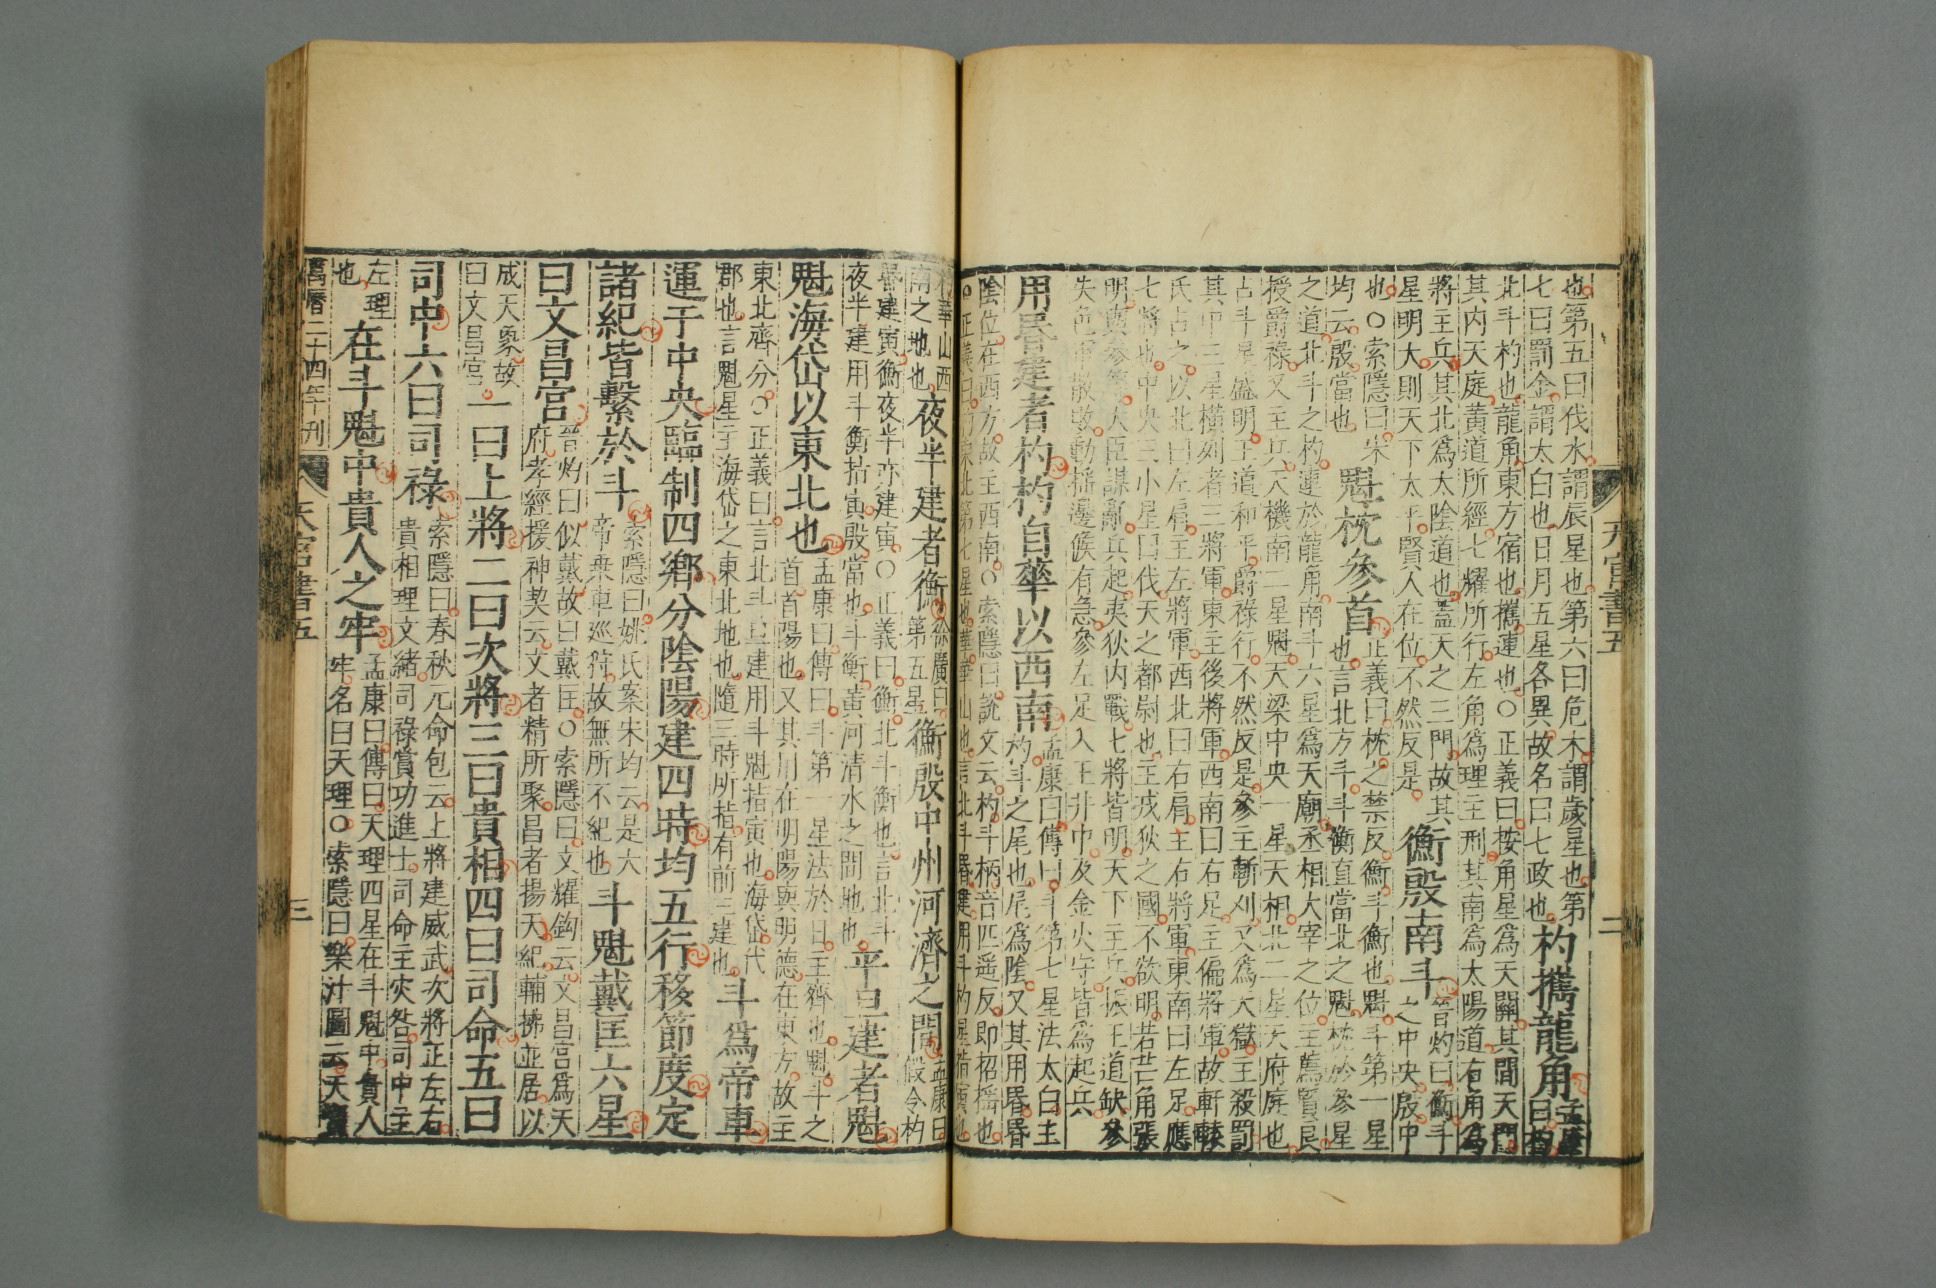 也第五曰伐水謂辰星也第六曰危木謂歲星也第
七曰罰金謂太白也日月五星各異故名曰七政也
杓攜龍角
孟康
曰杓
北斗杓也龍角東方宿也攜連也○正義曰按角星爲天關其間天門
其內天庭黃道所經七耀所行左角爲理主刑其南爲太陽道右角爲
將主兵其北爲太陰道也蓋天之三門故其
星明大則天下太平賢人在位不然反是
衡殷南斗
晉灼曰衡斗
之中央殷中
也○索隱曰宋
均云殷當也
魁枕參首
正義曰枕之禁反衡斗衡也魁斗第一星
也言北方斗斗衡直當北之魁枕於參星
之道北斗之杓連於龍角南斗六星爲天廟丞相大宰之位主薦賢良
授爵祿又主兵天機南二星魁天梁中央一星天相北二星天府庭也
占斗星盛明王道和平爵祿行不然反是參主斬刈又爲天獄主殺罰
其中三星橫列者三將軍東主後將軍西南曰右足主偏將軍故軒轅
氏占之以北曰左肩主左將軍西北曰右肩主右將軍東南曰左足應
七將也中央三小星曰伐天之都尉也主戎狄之國不欲明若芒角張
明與參等大臣謀亂兵起夷狄內戰七將皆明天下主兵振王道缺參
失色軍散敗動搖邊候有急參左足入玉井中及金火守皆爲起兵
用昏建者杓杓自華以西南
孟康曰傳曰斗第七星法太白主
杓斗之尾也尾爲陰又其用昏昏
陰位在西方故主西南○索隱曰說文云杓斗柄音匹遥反即招摇也
○正義曰杓東北第七星也華華山也言北斗昏建用斗杓星指寅也
天官書五
二
杓華山西
南之地也
夜半建者衡
徐廣曰
第五星
衡殷中州河濟之閒
孟康曰
假令杓
昏建寅衡夜半亦建寅○正義曰衡北斗衡也言北斗
夜半建用斗衡指寅殷當也斗衡黃河清水之間地也
平旦建者魁
魁海岱以東北也
孟康曰傳曰斗第一星法於日主齊也魁斗之
首首陽也又其用在明陽與明德在東方故主
東北齊分○正義曰言北斗旦建用斗魁指寅也海岱代
郡也言魁星主海岱之東北地也隨三時所指有前三建也
斗爲帝車
運于中央臨制四鄉分陰陽建四時均五行移節度定
諸紀皆繫於斗
索隱曰姚氏案宋均云是大
帝乗車巡狩故無所不紀也
斗魁戴匡六星
曰文昌宮
晉灼曰似戴故曰戴匡○索隱曰文耀鉤云文昌宮爲天
府孝經援神契云文者精所聚昌者揚天紀輔拂並居以
成天象故
曰文昌宮
一曰上將二曰次將三曰貴相四曰司命五曰
司中六曰司祿
索隱曰春秋元命包云上將建威武次將正左右
貴相理文緒司祿賞功進士司命主灾咎司中主
左理
也
在斗魁中貴人之牢
孟康曰傳曰天理四星在斗魁中貴人
牢名曰天理○索隱曰樂汁圖云天
萬曆二十四年刊
天官書五
三